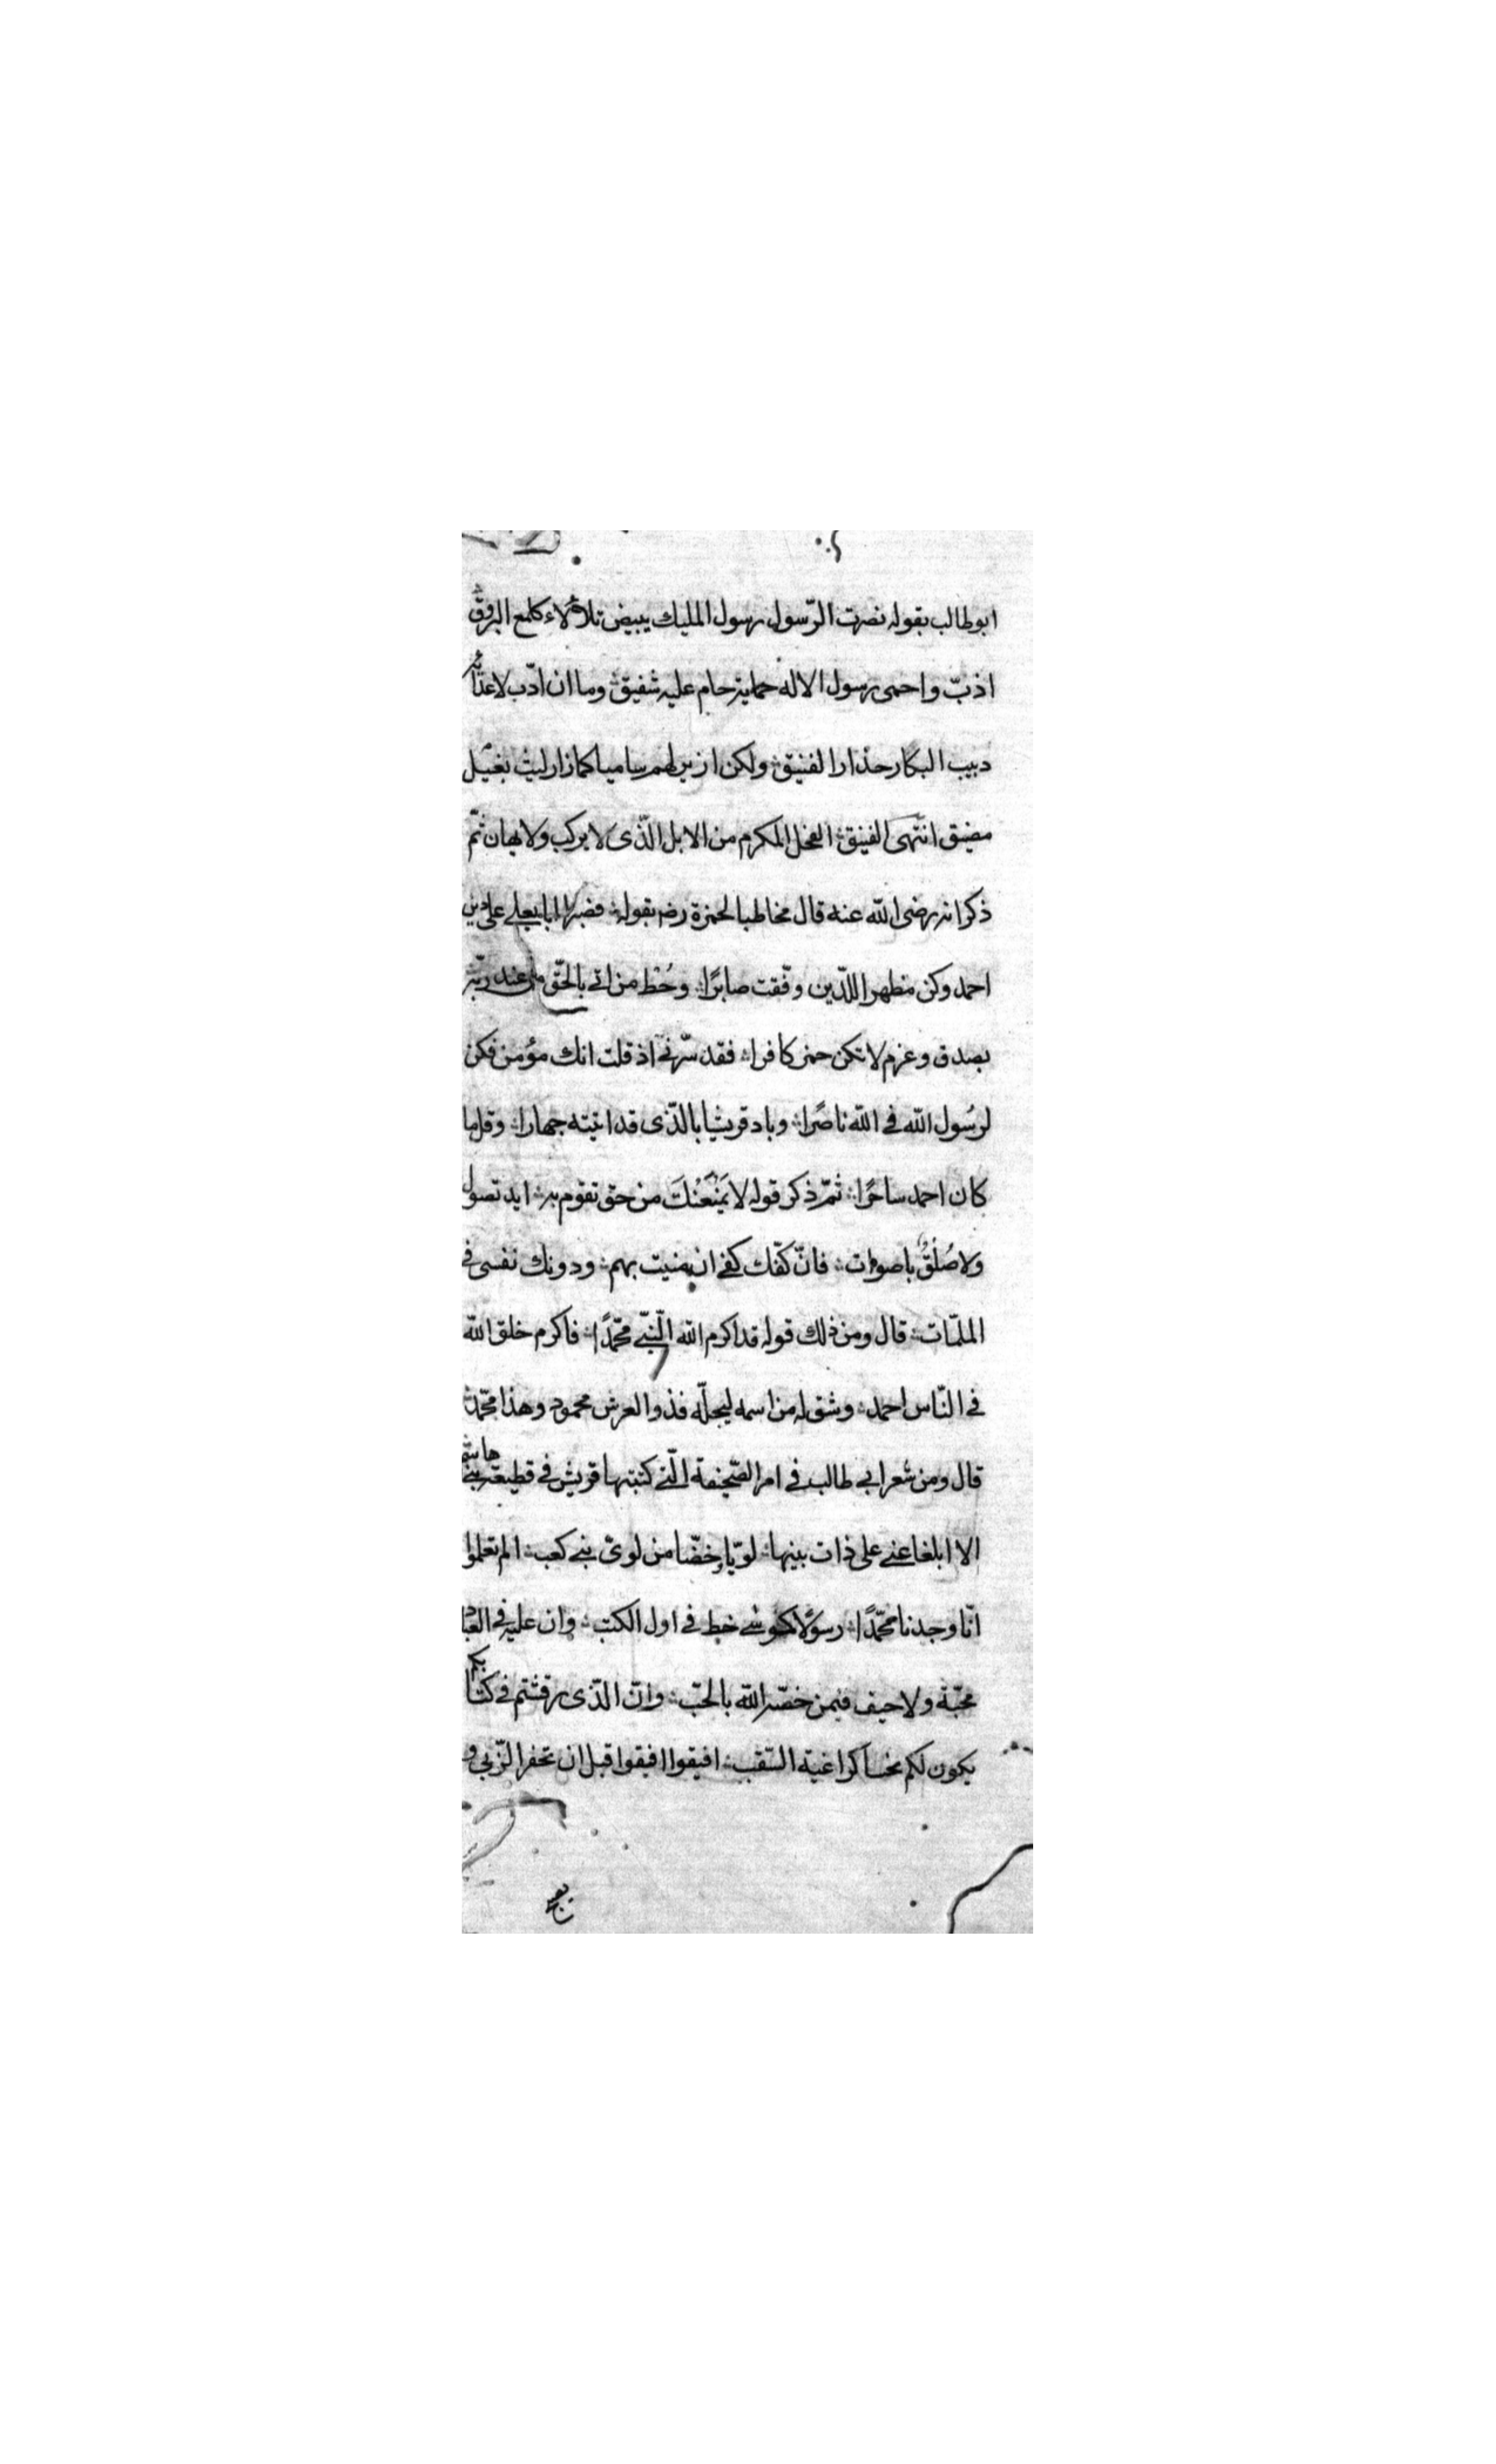 ابوطالب بقوله نصرت الرّسول رسول المليك ببيض تلألاء كلمع البروق
اذبّ واحمى رسول الاله حماية حام عليه شفيق وما ان ادّب لاعدائه
دبيب البكار حذار الفنيق ولكن ازير لهم ساميا كما زار ليث بغيل
مضيق انتهى الفنيق الفحل المكرم من الابل الّذى لا يركب ولا يهان ثمّ
ذكر انه رضى الله عنه قال مخاطبا لحمزة رض بقوله فصبرا ابا يعلى على دين
احمد وكن مظهرا للدّين وفّقت صابرًا وحُط من اتى بالحّق من عند ربّه
بصدق وعزم لا تكن حمز كافرا فقد سّرنى اذ قلت انك مؤمن فكن
لرسُول الله فى الله ناصرًا وباد قريشا بالّذى قد اتيته جهارا وقل ما
كان احمد ساحرًا ثمّ ذكر قوله لا يَمْنَعَنْكَ من حق تقوم به ايد تصول
ولا صُلْقُ باصوات فانّ كفّك كفى ان منيت بهم ودونك نفسى فى
الملمّات قال ومن ذلك قوله قد اكرم الله النّبىّ محمّدًا فاكرم خلق الله
فى النّاس احمد وشق له من اسمه ليجلّه فذوالعرش محمود وهذا محمّد
قال ومن شعر ابى طالب فى امر الصّحيفة الّتى كتبتها قريش فى قطيعة بنى هاشم
الا ابلغا عنى على ذات بينها لويّا وخصّا من لوىّ بنى كعب الم تعلموا
انّا وجدنا محمّدًا رسولًا كموسى خط فى اول الكتب وان عليه فى العباد
محبّة ولا حيف فيمن خصّه الله بالحبّ وانّ الّذى رقشتم فى كتابكم
يكون لكم نحسا كراغية السّقب افيقوا افيقوا قبل ان تحفر الزّبى و